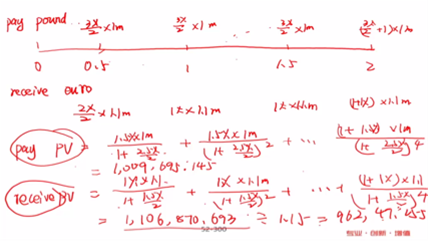 pay pound 3%/2 × 1m 3%/2 × 1m 3%/2 × 1m (3%/2 + 1) × 1m
0 0.5 1 1.5 2
receive euro
2%/2 × 1.1m 1% × 1.1m 1% × 1.1m (1+1%) × 1.1m
pay PV = 1.5% × 1m / (1 + 2.5%/2) + 1.5% × 1m / (1 + 2.5%/2)^2 + ... (1 + 1.5%) × 1m / (1 + 2.5%/2)^4
= 1,009,695.145
receive PV = 1% × 1.1 / (1 + 1.5%/2) + 1% × 1.1m / (1 + 1.5%/2)^2 + ... + (1+1%) × 1.1m / (1 + 1.5%/2)^4
= 1,106,870.693 ÷ 1.15 =
52-300